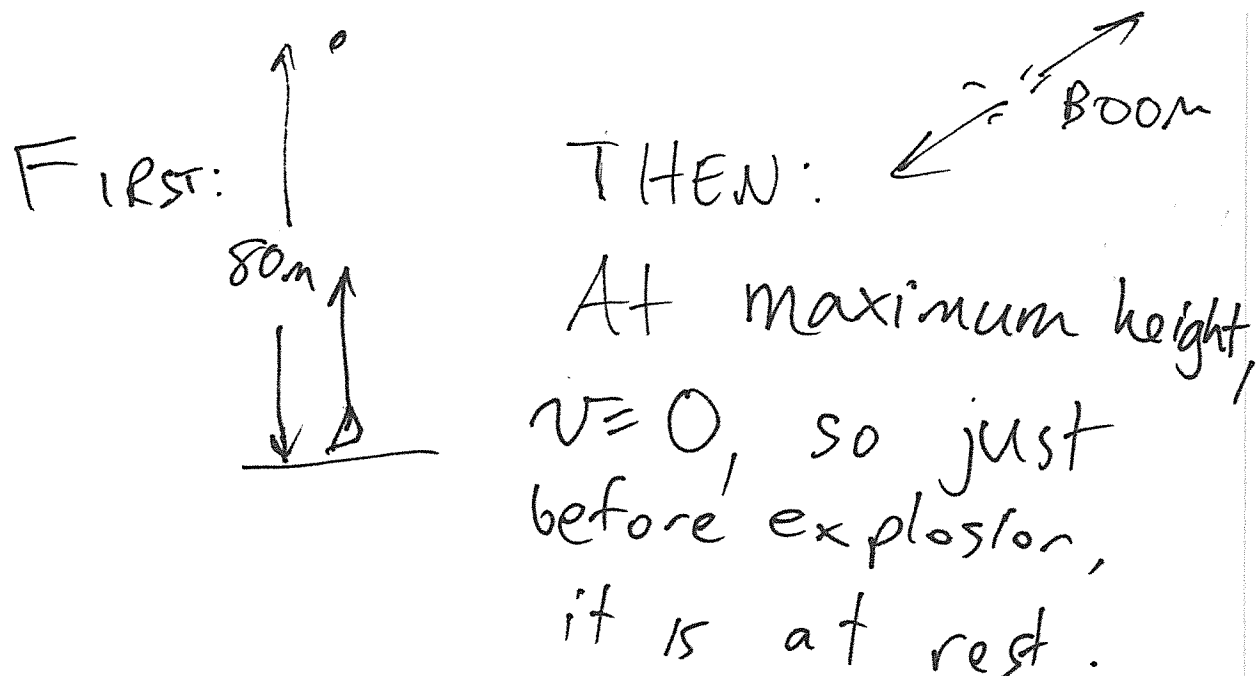 FIRST:
80m
THEN:
BOOM
At maximum height,
v = 0, so just
before explosion,
it is at rest.